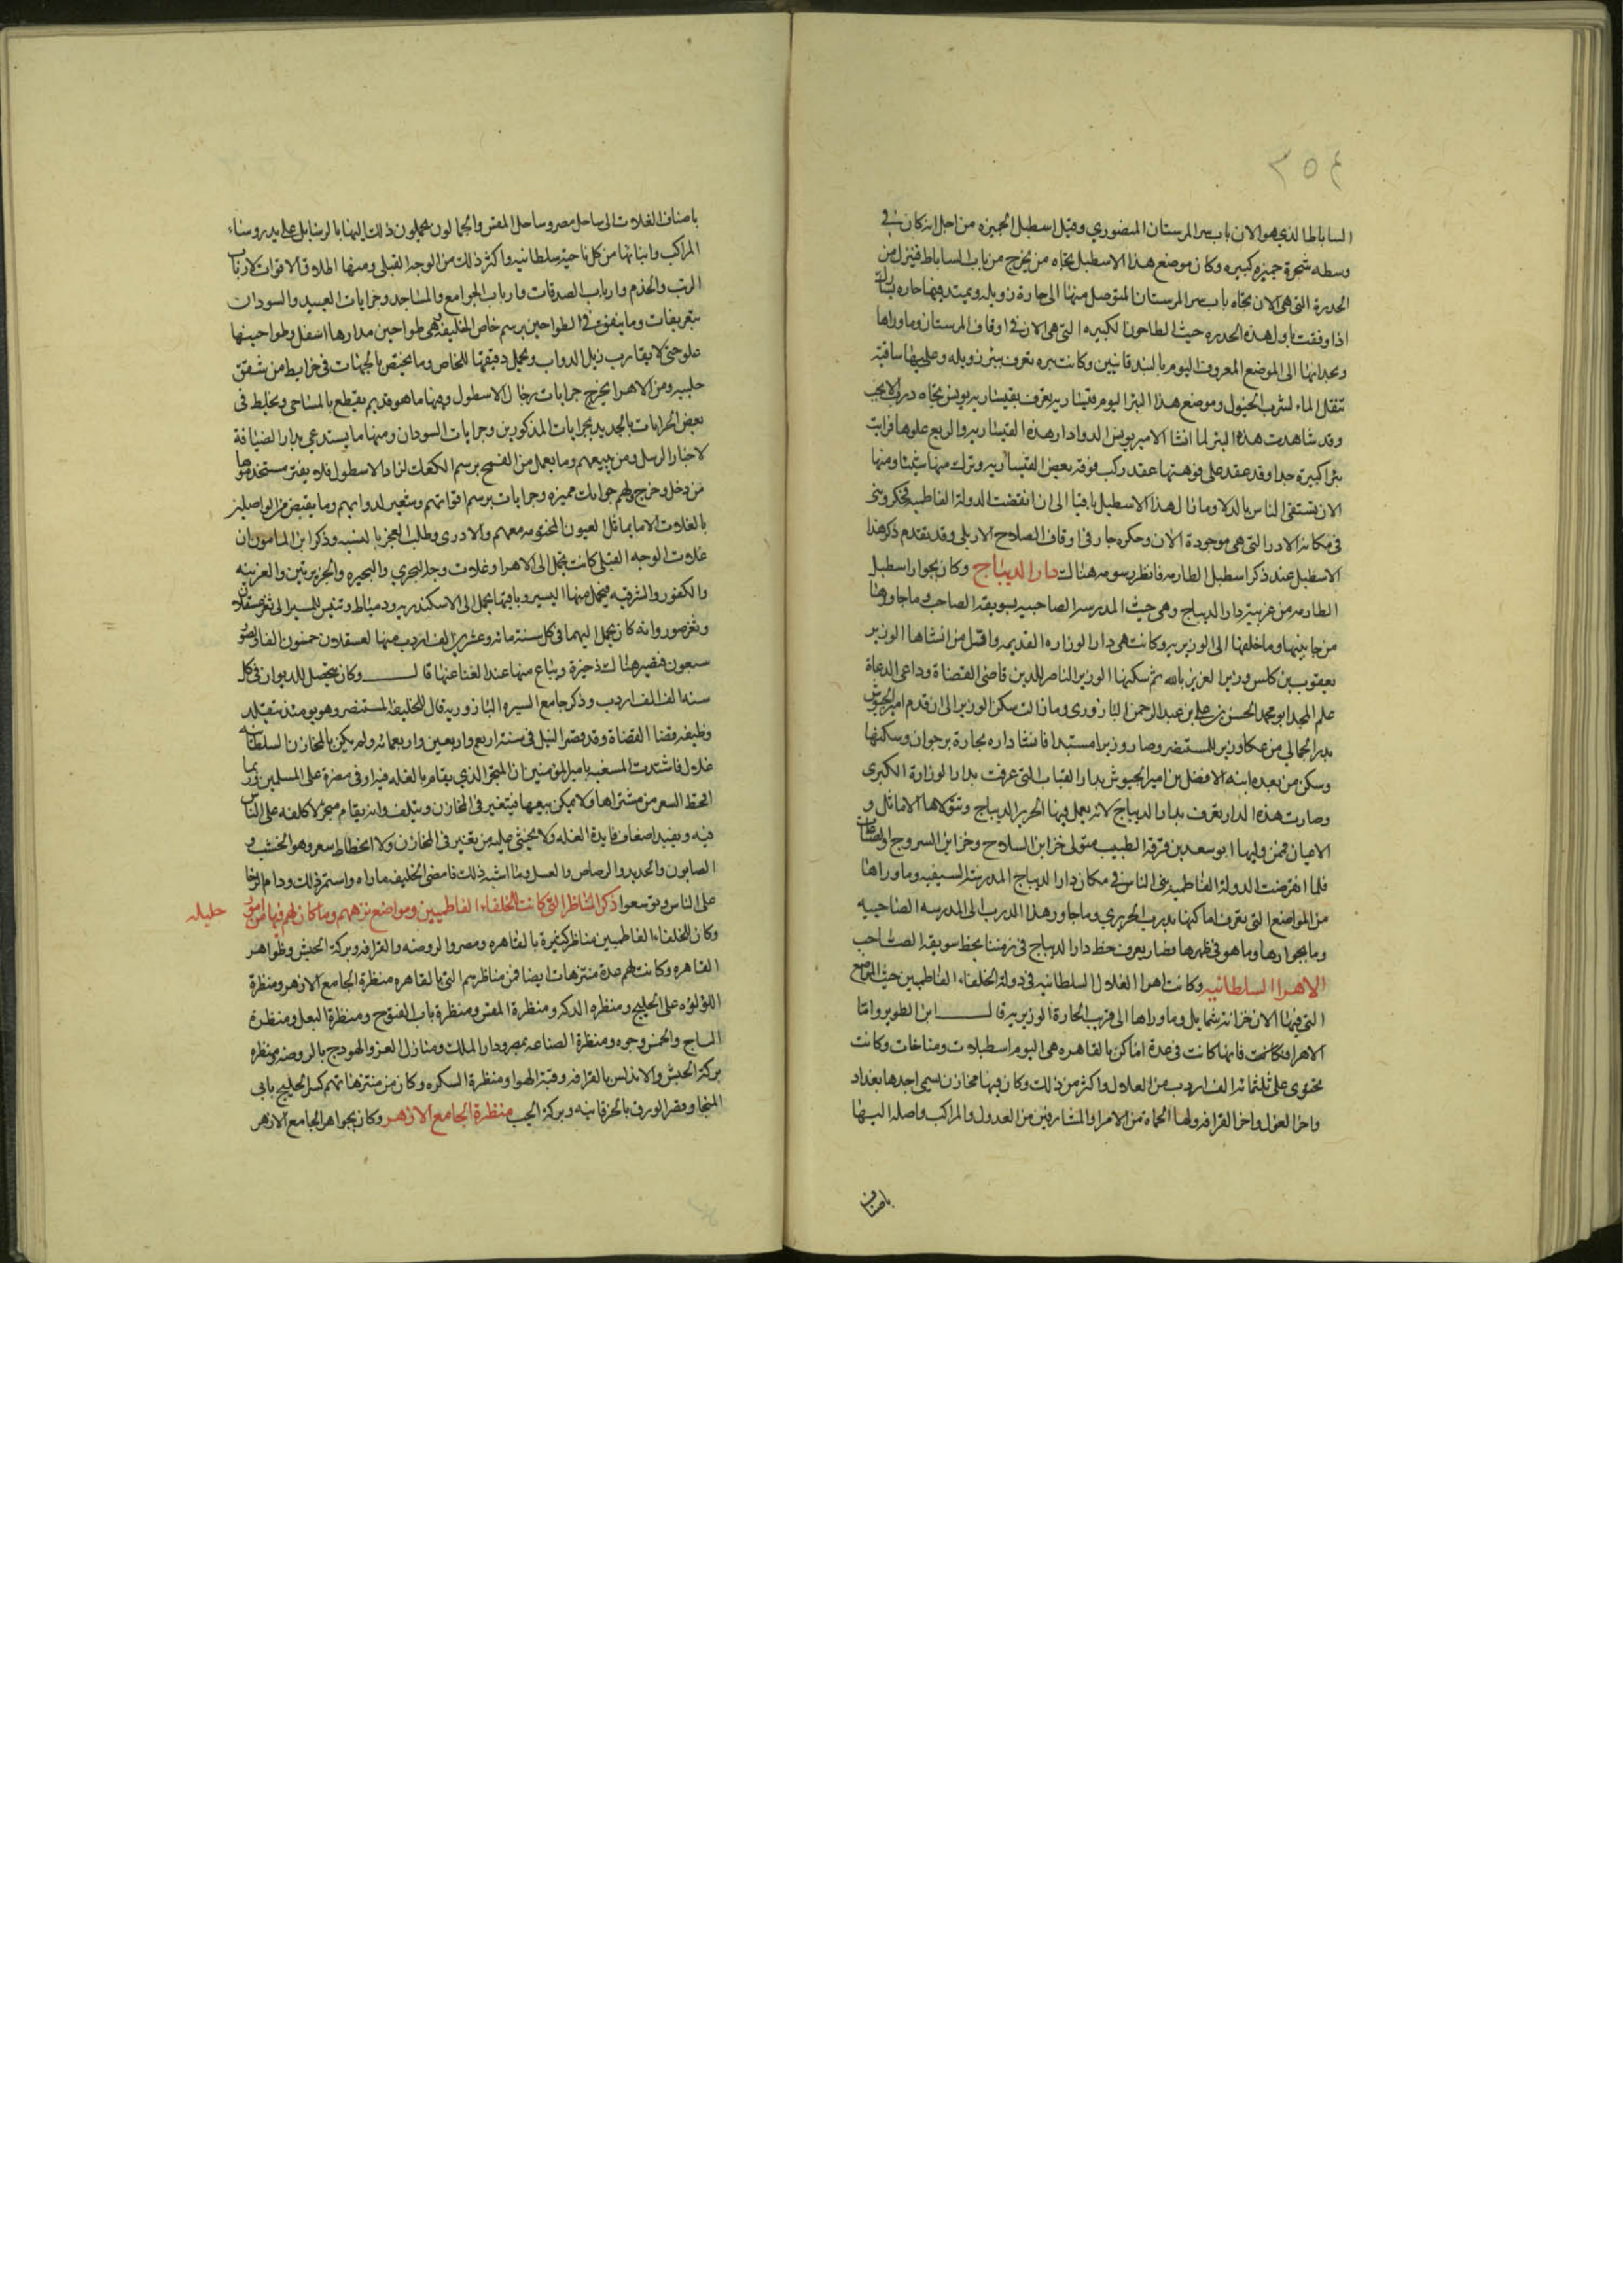 ٢٥٤
الساباط الذي هو الان باب سر المرستان المنصوري وقيل اسطبل الجميزه من اجل انه كان في
وسطه شجرة جميزه كبيره وكان موضع هذا الاسطبل تجاه من يخرج من باب الساباط فينزل من
الحدرة التي هي الان تجاه باب سر المرستان المتوصل منها الى حارة زويله ويمتد فيها حاره يسارك
اذا وقفت باول هذه الحدره حيث الطاحون الكبيره التي هي الان في اوقاف المرستان وما وراها
وبحدايها الى الموضع المعروف اليوم بالبندقانيين وكانت بيره تعرف ببئر زويله وعليها ساقيه
تنقل الماء لشرب الخيول وموضع هذا البئر اليوم قيساريه تعرف بقيساريه يونس تجاه درب الانجب
وقد شاهدت هذه البئر لما انشا الامير يونس الدوادار هذه القيساريه والربع علوها فرايت
بئرا كبيرة جدا وقد عقد على فوهتها عقد ركب فوقه بعض القيساريه وترك منها شيئا ومنها
الان تستقى الناس بالدلا وما زال هذا الاسطبل باقيا الى ان انقضت الدولة الفاطميه فحكر وبنى
في مكانه الادر التي هي موجودة الان وحكره جار في اوقاف الصلاح الاربلي وقد تقدم ذكر هذا
الاسطبل عند ذكر اسطبل الطارمه فانظر رسومه هناك دار الديباج وكان بجوار اسطبل
الطارمه من غربيه دار الديباج وهي حيث المدرسه الصاحبيه بسويقه الصاحب وما جاورها
من جانبيها وما خلفها الى الوزيريه وكانت هي دار الوزاره القديمه واول من انشاها الوزير
يعقوب بن كلس وزير العزيز بالله ثم سكنها الوزير الناصر للدين قاضي القضاة وداعي الدعاة
علم المجد ابو محمد الحسن بن علي بن عبد الرحمن اليازوري وما زالت سكن الوزير الى ان قدم امير الجيوش
بدر الجمالي من عكا وزير للمستنصر وصار وزيرا مستبدا فانشا داره بحارة برجوان وسكنها
وسكن من بعده ابنه الافضل بن امير الجيوش بدار القباب التي عرفت بدار الوزارة الكبرى
وصارت هذه الدار تعرف بدار الديباج لانه يعمل فيها الحرير الديباج ويتولاها الاماثل و
الاعيان فمن وليها ابو سعد بن قرقه الطبيب متولى خزاين السلاح وخزاين السروج والصناعات
فلما انقرضت الدولة الفاطميه بنى الناس في مكان دار الديباج المدرسة السيفيه وما وراها
من المواضع التي تعرف اماكنها بدرب الحريري وما جاور هذا الدرب الى المدرسه الصاحبيه
وما بجوارها وما هو في ظهرها فصار يعرف خط دار الديباج في زمننا بخط سويقه الصاحب
الاهراالسلطانيه وكانت اهرا الغلال السلطانيه في دولة الخلفاء الفاطميين حيث المواضع
التي فيها الان خزانة شمايل وما وراها الى قرب الحارة الوزيريه قال ابن الطوير واما
الاهرا فكانت فانها كانت في عدة اماكن بالقاهره هي اليوم اسطبلات ومناخات وكانت
تحتوى على ثلثمائه الف اردب من الغلال واكثر من ذلك وكان فيها مخازن يسمى احدها بغداد
واخر الغول واخر القرافه ولها الحماة من الامرا والمشارفين من العدول والمراكب واصله اليها
باصناف
باصناف الغلات الى ساحل مصر وساحل المقس والحمالون يحملون ذلك اليها بالرسايل على يد روساء
المراكب وامنائها من كل ناحية سلطانيه واكثر ذلك من الوجه القبلي ومنها اطلاق الاقوات لارباب
الرتب والخدم وارباب الصدقات وارباب الجوامع والمساجد وجرايات العبيد والسودان
بتعريفات وما ينفق في الطواحين برسم خاص الخليفه وهي طواحين مدارها اسفل وطواحينها
علو حتى لا يقارب زبل الدواب ويحمل دقيقها للخاص وما يختص بالجهات في خرايط من شقق
حلبيه ومن الاهرا يخرج جرايات رجال الاسطول وفيها ما هو قديم يقطع بالمساحى ويخلط فى
بعض الجرايات بالجديد بجرايات المذكورين وجرايات السودان ومنها ما يستدعى بدار الضيافة
لاخبار الرسل ومن يتبعهم وما يعمل من القمح برسم الكعك لزاد الاسطول فلا يفتر مستخدموها
من دخل وخرج ولهم جوامك مميزه وجرايات برسم اقواتهم وشعير لدوابهم وما يقبض من الواصلين
بالغلات الا ما يماثل العيون المختومه معهم والا ذرى وطلب العجز بالنسبه وذكر ابن المامون ان
غلات الوجه القبلى كانت تحمل الى الاهرا وغلات وجه البحري والبحيره والجزيرتين والغربيه
والكفور والشرقيه فيحمل منها اليسير وباقيها يحمل الى الاسكندريه ودمياط وتنيس ليسير الى ثغر عسقلان
وثغر صور وانه كان يحمل اليهما في كل سنة مائة وعشرين الف اردب منها لعسقلان خمسون الفا ولصور
سبعون فتصير هناك ذخيرة ويباع منها عند الغنا عنها قال وكان متحصل الديوان في كل
سنه الف الف اردب وذكر جامع السيره اليازوريه قال للخليفة المستنصر وهو يومئذ يتقلد
وظيفه قضا القضاة وقد قصر النيل في سنة اربع واربعين واربعمائه ولم يكن بالمخازن السلطانيه
غلال فاشتدت المسغبه يا مير المومنين ان المتجر الذي يقام بالغله فيه اوفى مضرة على المسلمين وربما
انحط السعر من مشتراها ولا يمكن بيعها فتتغير في المخازن وتتلف وانه يقام متجر لا كلفه على الناس
فيه ويفيد اضعاف فايدة الغله ولا يخشى عليه من تغير في المخازن ولا انحطاط سعر وهو الخشب و
الصابون والحديد والرصاص والعسل وما اشبه ذلك فامضى الخليفه ماراه واستمر ذلك ودام الرخا
على الناس وتوسعوا ذكر المناظر التي كانت للخلفاء الفاطميين ومواضع نزههم وما كان لهم فيها من امور جليله
وكان للخلفاء الفاطميين مناظر كثيرة بالقاهره ومصر والروضه والقرافه وبركة الحبش وظواهر
القاهره وكانت لهم عدة منتزهات ايضا فمن مناظرهم التي بالقاهره منظرة الجامع الازهر ومنظرة
اللؤلؤه على الخليج ومنظره الدكه ومنظرة المقس ومنظرة باب الفتوح ومنظرة البعل ومنظرة
التاج والخمس وجوه ومنظرة الصناعه بمصر ودار الملك ومنازل العز والهودج بالروضه ومنظره
بركة الحبش والاندلس بالقرافه وقبة الهوا ومنظرة السكره وكان من منتزهاتهم كسر الخليج بابى
المنجا وقصر الورد بالخرقانيه وبركة الجب منظرة الجامع الازهر وكان بجوار الجامع الازهر